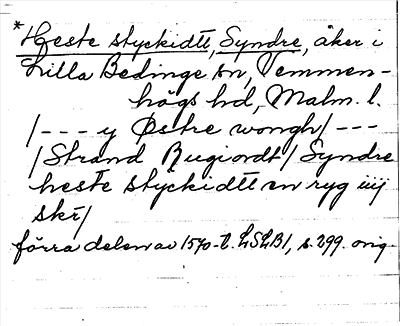 *Heste styckidtt, Syndre, åker i
Lilla Bedinge sn, Vemmen-
högs hd, Malm. l.
/--- y Østre wongh/---
/Strand Rugiordt/ Syndre
heste styckidtt en ryg iiij
skr/
förra delen av 1570-t. LSLB1, s. 299. orig.